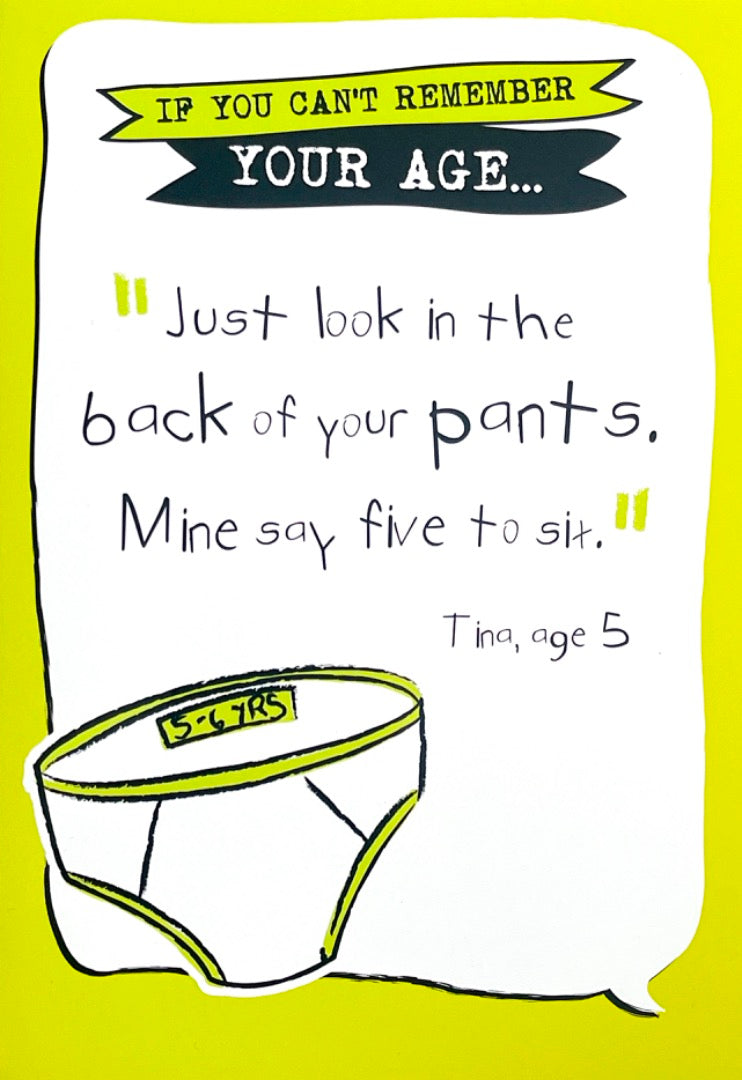 IF YOU CAN'T REMEMBER
YOUR AGE...
"Just look in the
back of your pants.
Mine say five to six."
Tina, age 5
5-6 YRS